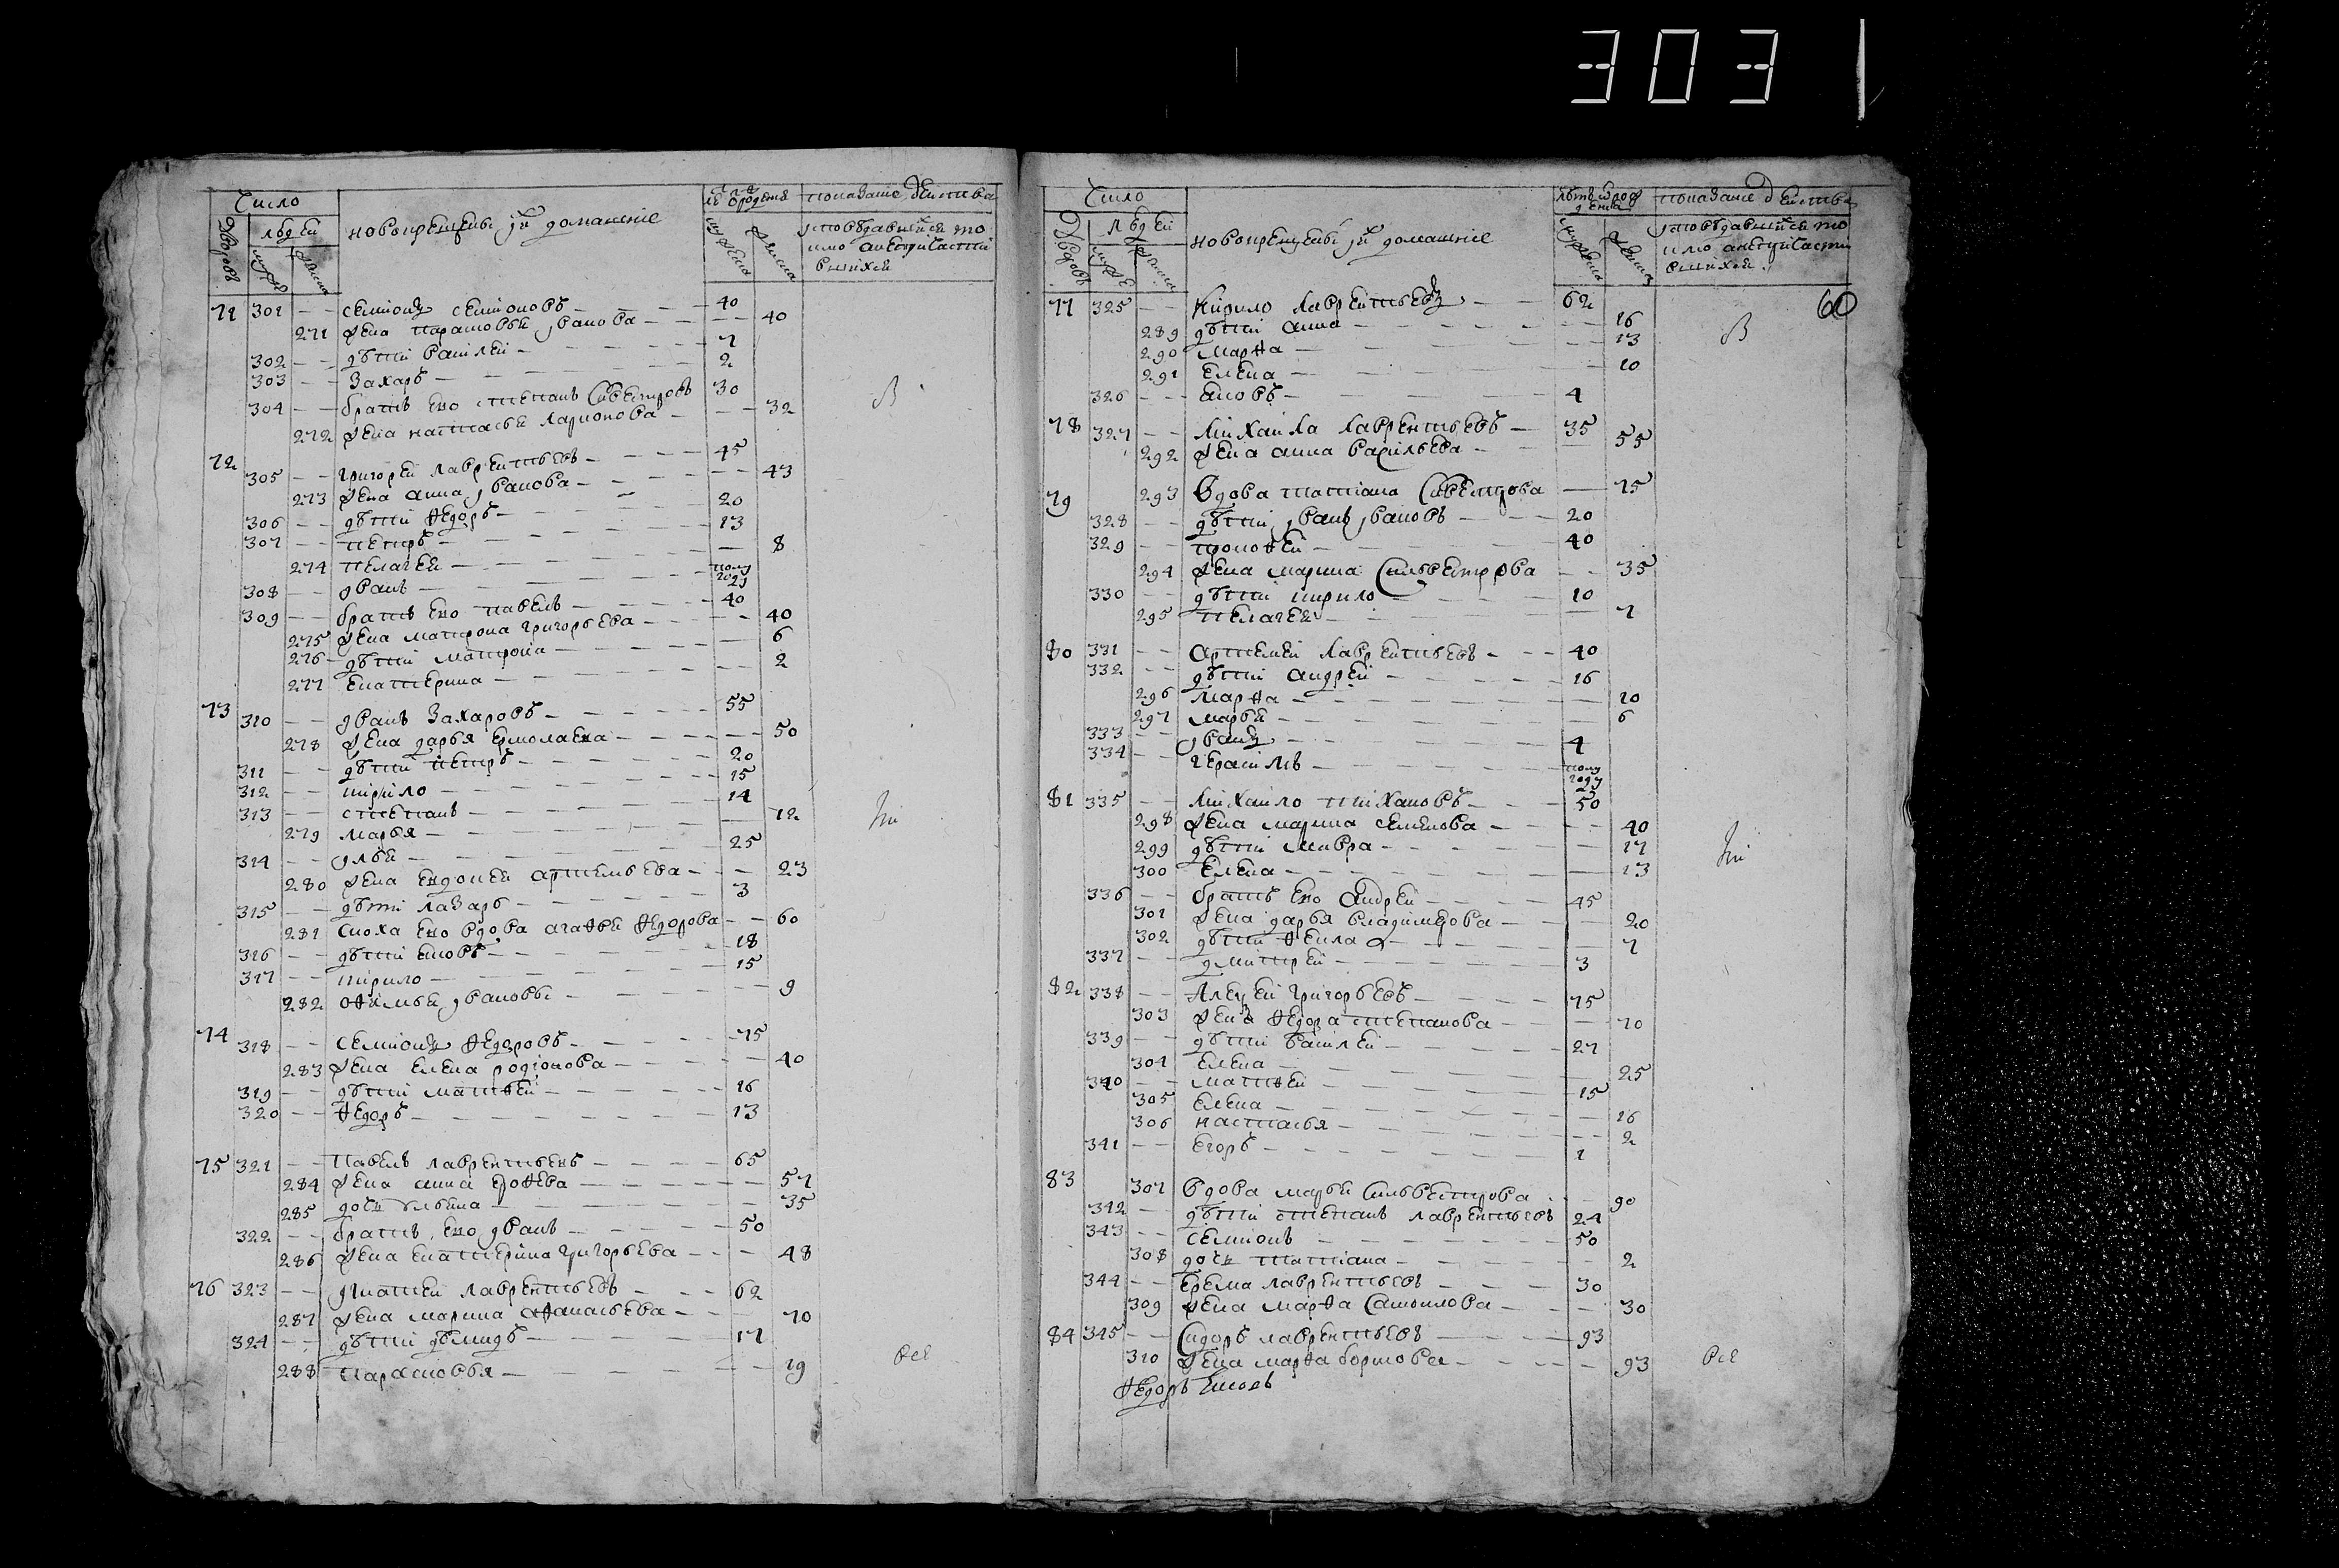 3031
Число
Дворовъ
людей
мужеска
женска
новокрещены и их домашние
лета от рождения
мужеска
женска
показание действа
исповедавшися то
кмо а не причасти
вшихся
71 301 – – семионъ семионовъ – 40
271 жена парасковья иванова – 40
302 – – дѣти василей – 7
303 – – захаръ – 2
304 – – братъ ево степанъ силвестровъ 30
272 жена настасья ларионова – 32
В
72 305 – – григорей лаврентьевъ – 45
273 жена анна иванова – 43
306 – – дѣти федоръ – 20
307 – – петръ – 13
274 пелагея – 8
308 – – иванъ – полу году
309 – – братъ ево павелъ – 40
275 жена матрона григорьева – 40
276 дѣти матрона – 6
277 екатерина – 2
73 310 – – иванъ захаровъ – 55
278 жена дарья ермолаева – 50
311 – – дѣти петръ – 20
312 – – кирило – 15
313 – – степанъ – 14
279 марья – 12
314 – – илья – 25
280 жена евдокея артемьева – 23
315 – – дѣти лазарь – 3
281 сноха ево вдова агафья федорова – 60
316 – – дѣти яковъ – 18
317 – – кирило – 15
282 офимья ивановы – 9
74 318 – – семионъ федоровъ – 75
283 жена елена родионова – 40
319 – – дѣти матвей – 16
320 – – федоръ – 13
75 321 – – павелъ лаврентьевъ – 65
284 жена анна ерофева – 57
285 дочь ульяна – 35
322 – – братъ ево иванъ – 50
286 жена екатерина григорьева – 48
76 323 – – игнатей лаврентьевъ – 62
287 жена марина афанасьева – 70
324 – – дѣти демидъ – 17
288 парасковья – 19
все
Число
Дворовъ
людей
мужеска
женска
новокрещены и их домашние
летъ от рождения
мужеска
женска
показание действа
исповедавшися то
кмо а не причасти
вшихся
60
77 325 – – кирило лаврентьевъ – 62
289 дѣти анна – 16
290 марфа – 13
291 елена – 10
326 – – яковъ – 4
В
78 327 – – михаила лаврентьевъ – 35
292 жена анна васильева – 55
79 293 вдова татиана силвестрова – 75
328 – – дѣти иванъ ивановъ – 20
329 – – прокофей – 40
294 жена марина сильвестрова – 35
330 – – дѣти кирило – 10
295 пелагея – 7
80 331 – – артемей лаврентьевъ – 40
332 – – дѣти андрей – 16
296 марфа – 10
297 марья – 6
333 – – иванъ – 4
334 – – герасимъ – полу году
81 335 – – михаило тихановъ – 50
298 жена марина семенова – 40
299 дѣти мавра – 17
300 елена – 13
336 – – братъ ево андрей – 45
301 жена дарья владимерова – 20
302 дѣти фекла – 7
337 – – дмитрей – 3
82 338 – – алексей григорьевъ – 75
303 жена федора степанова – 70
339 – – дѣти василей – 27
304 елена – 25
340 – – матвей – 15
305 елена – 16
306 настасья – 2
341 – – егоръ – 1
83 307 вдова марья сильвестрова – 90
342 – – дѣти степанъ лаврентьевъ 24
343 – – семионъ – 50
308 дочь татиана – 2
344 – – ерема лаврентьевъ – 30
309 жена марфа самоилова – 30
84 345 – – сидоръ лаврентьевъ – 93
310 жена марфа борисова – 93
все
федоръ